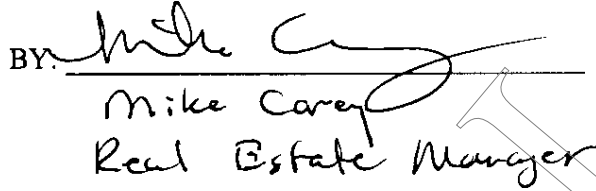 BY: Mike Carey
Mike Carey
Real Estate Manager